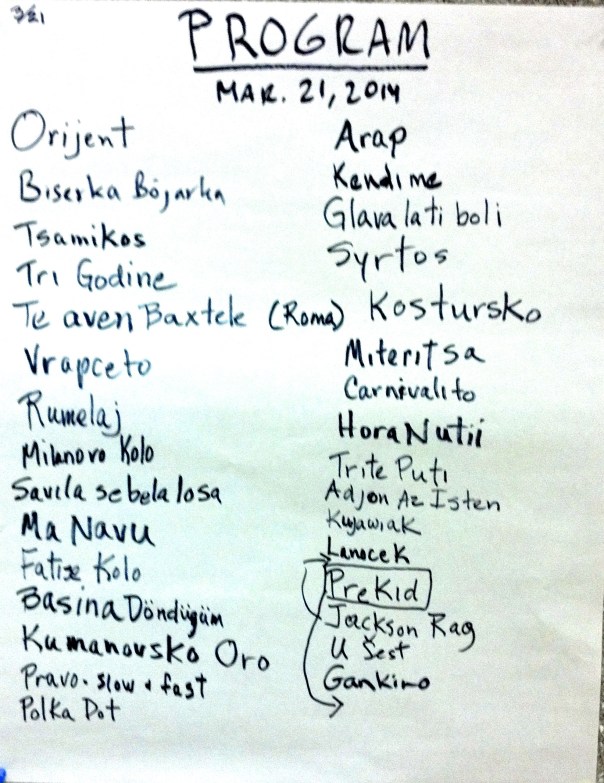 321
PROGRAM
MAR. 21, 2014
Orijent
Biserka Bojarka
Tsamikos
Tri Godine
Te aven Baxtele (Roma)
Vrapceto
Rumelaj
Milanovo Kolo
Savila se bela losa
Ma Navu
Fatise Kolo
Basina Döndügüm
Kumanovsko Oro
Pravo - slow + fast
Polka Dot
Arap
Kendime
Glava lati boli
Syrtos
Kostursko
Miteritsa
Carnivalito
Hora Nutii
Trite Puti
Adjon Az Isten
Kujawiak
Lanocek
Prekid
Jackson Rag
U Šest
Gankino